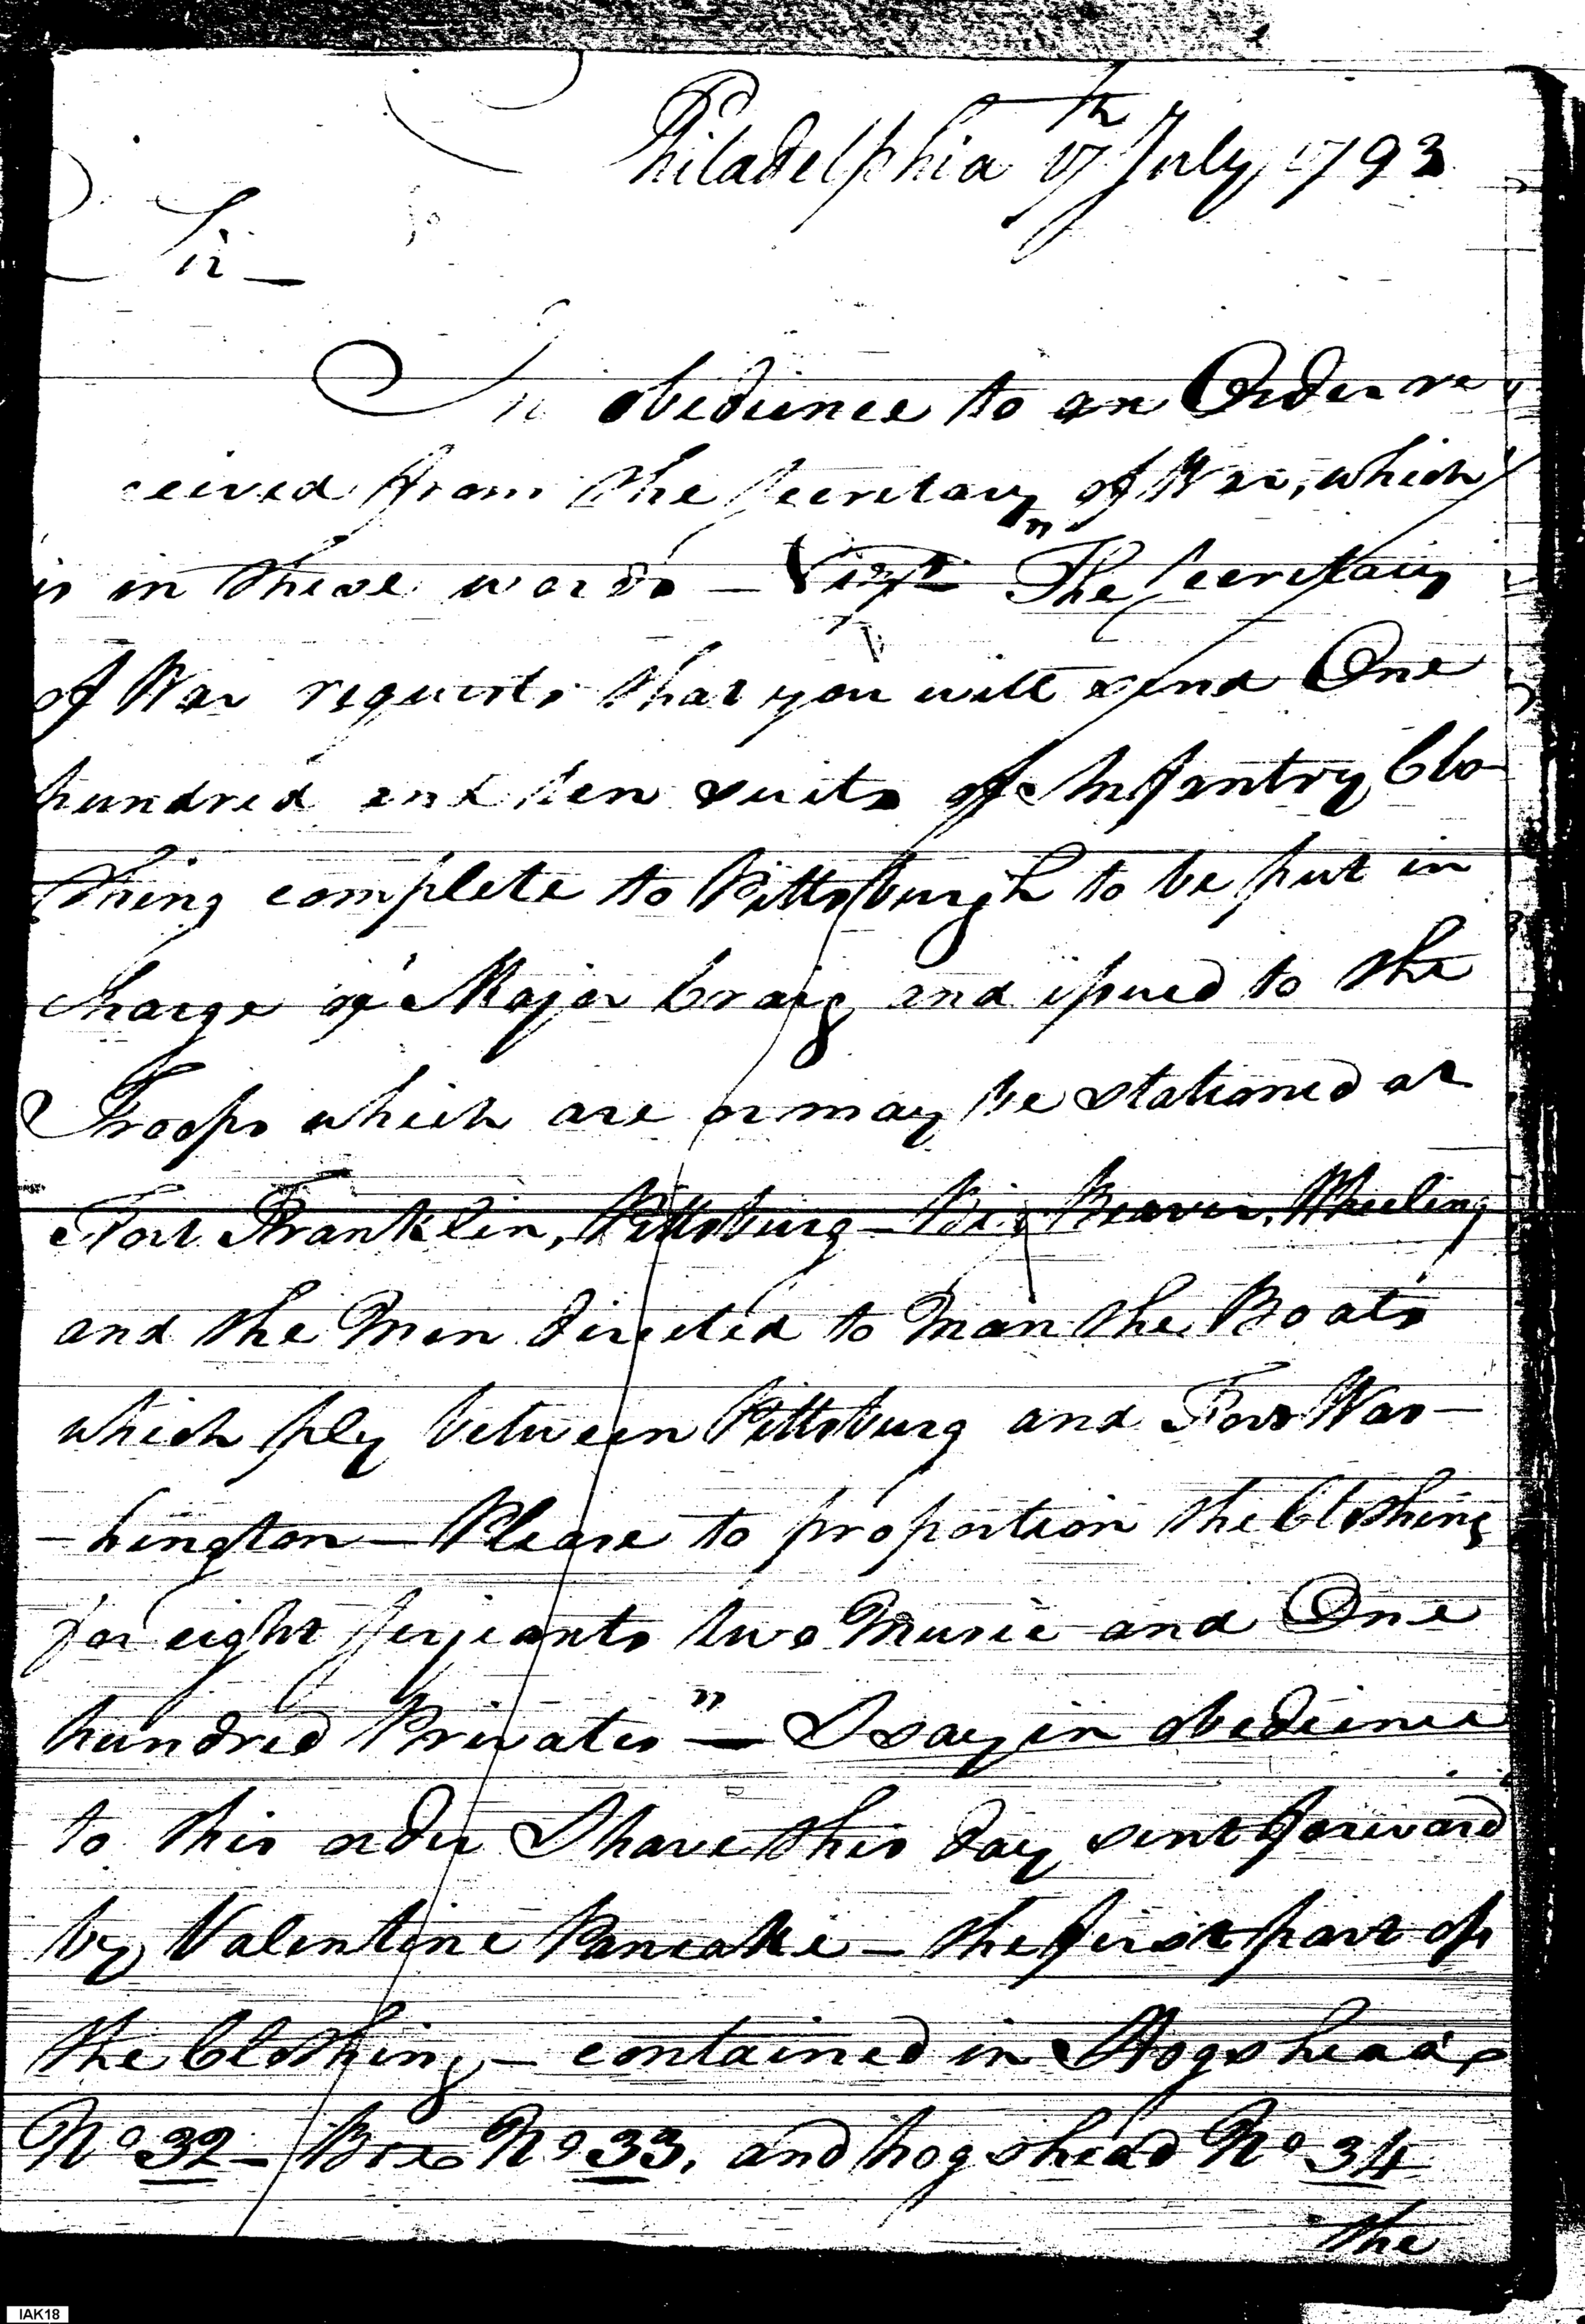 Philadelphia 17th July 1793
Sir —
In obedience to an Order re
ceived from the Secretary of War, which
is in these words — Vizt "The Secretary
of War requests that you will send One
hundred and ten suits of Infantry Clo-
thing complete to Pittsburgh to be put in
charge of Major Craig and issued to the
Troops which are or may be stationed at
Fort Franklin, Pittsburg — Big Beaver, Wheeling
and the Men directed to Man the Boats
which ply between Pittsburg and Fort Was—
—hington — Please to proportion the Clothing
for eight Serjeants two Music and One
hundred Privates" — I say in obedience
to this order I have this day sent forward
by Valentine Pancake — the first part of
the Clothing — contained in Hogshead
No 32 — Box No 33, and hogshead No 34
the
IAK18